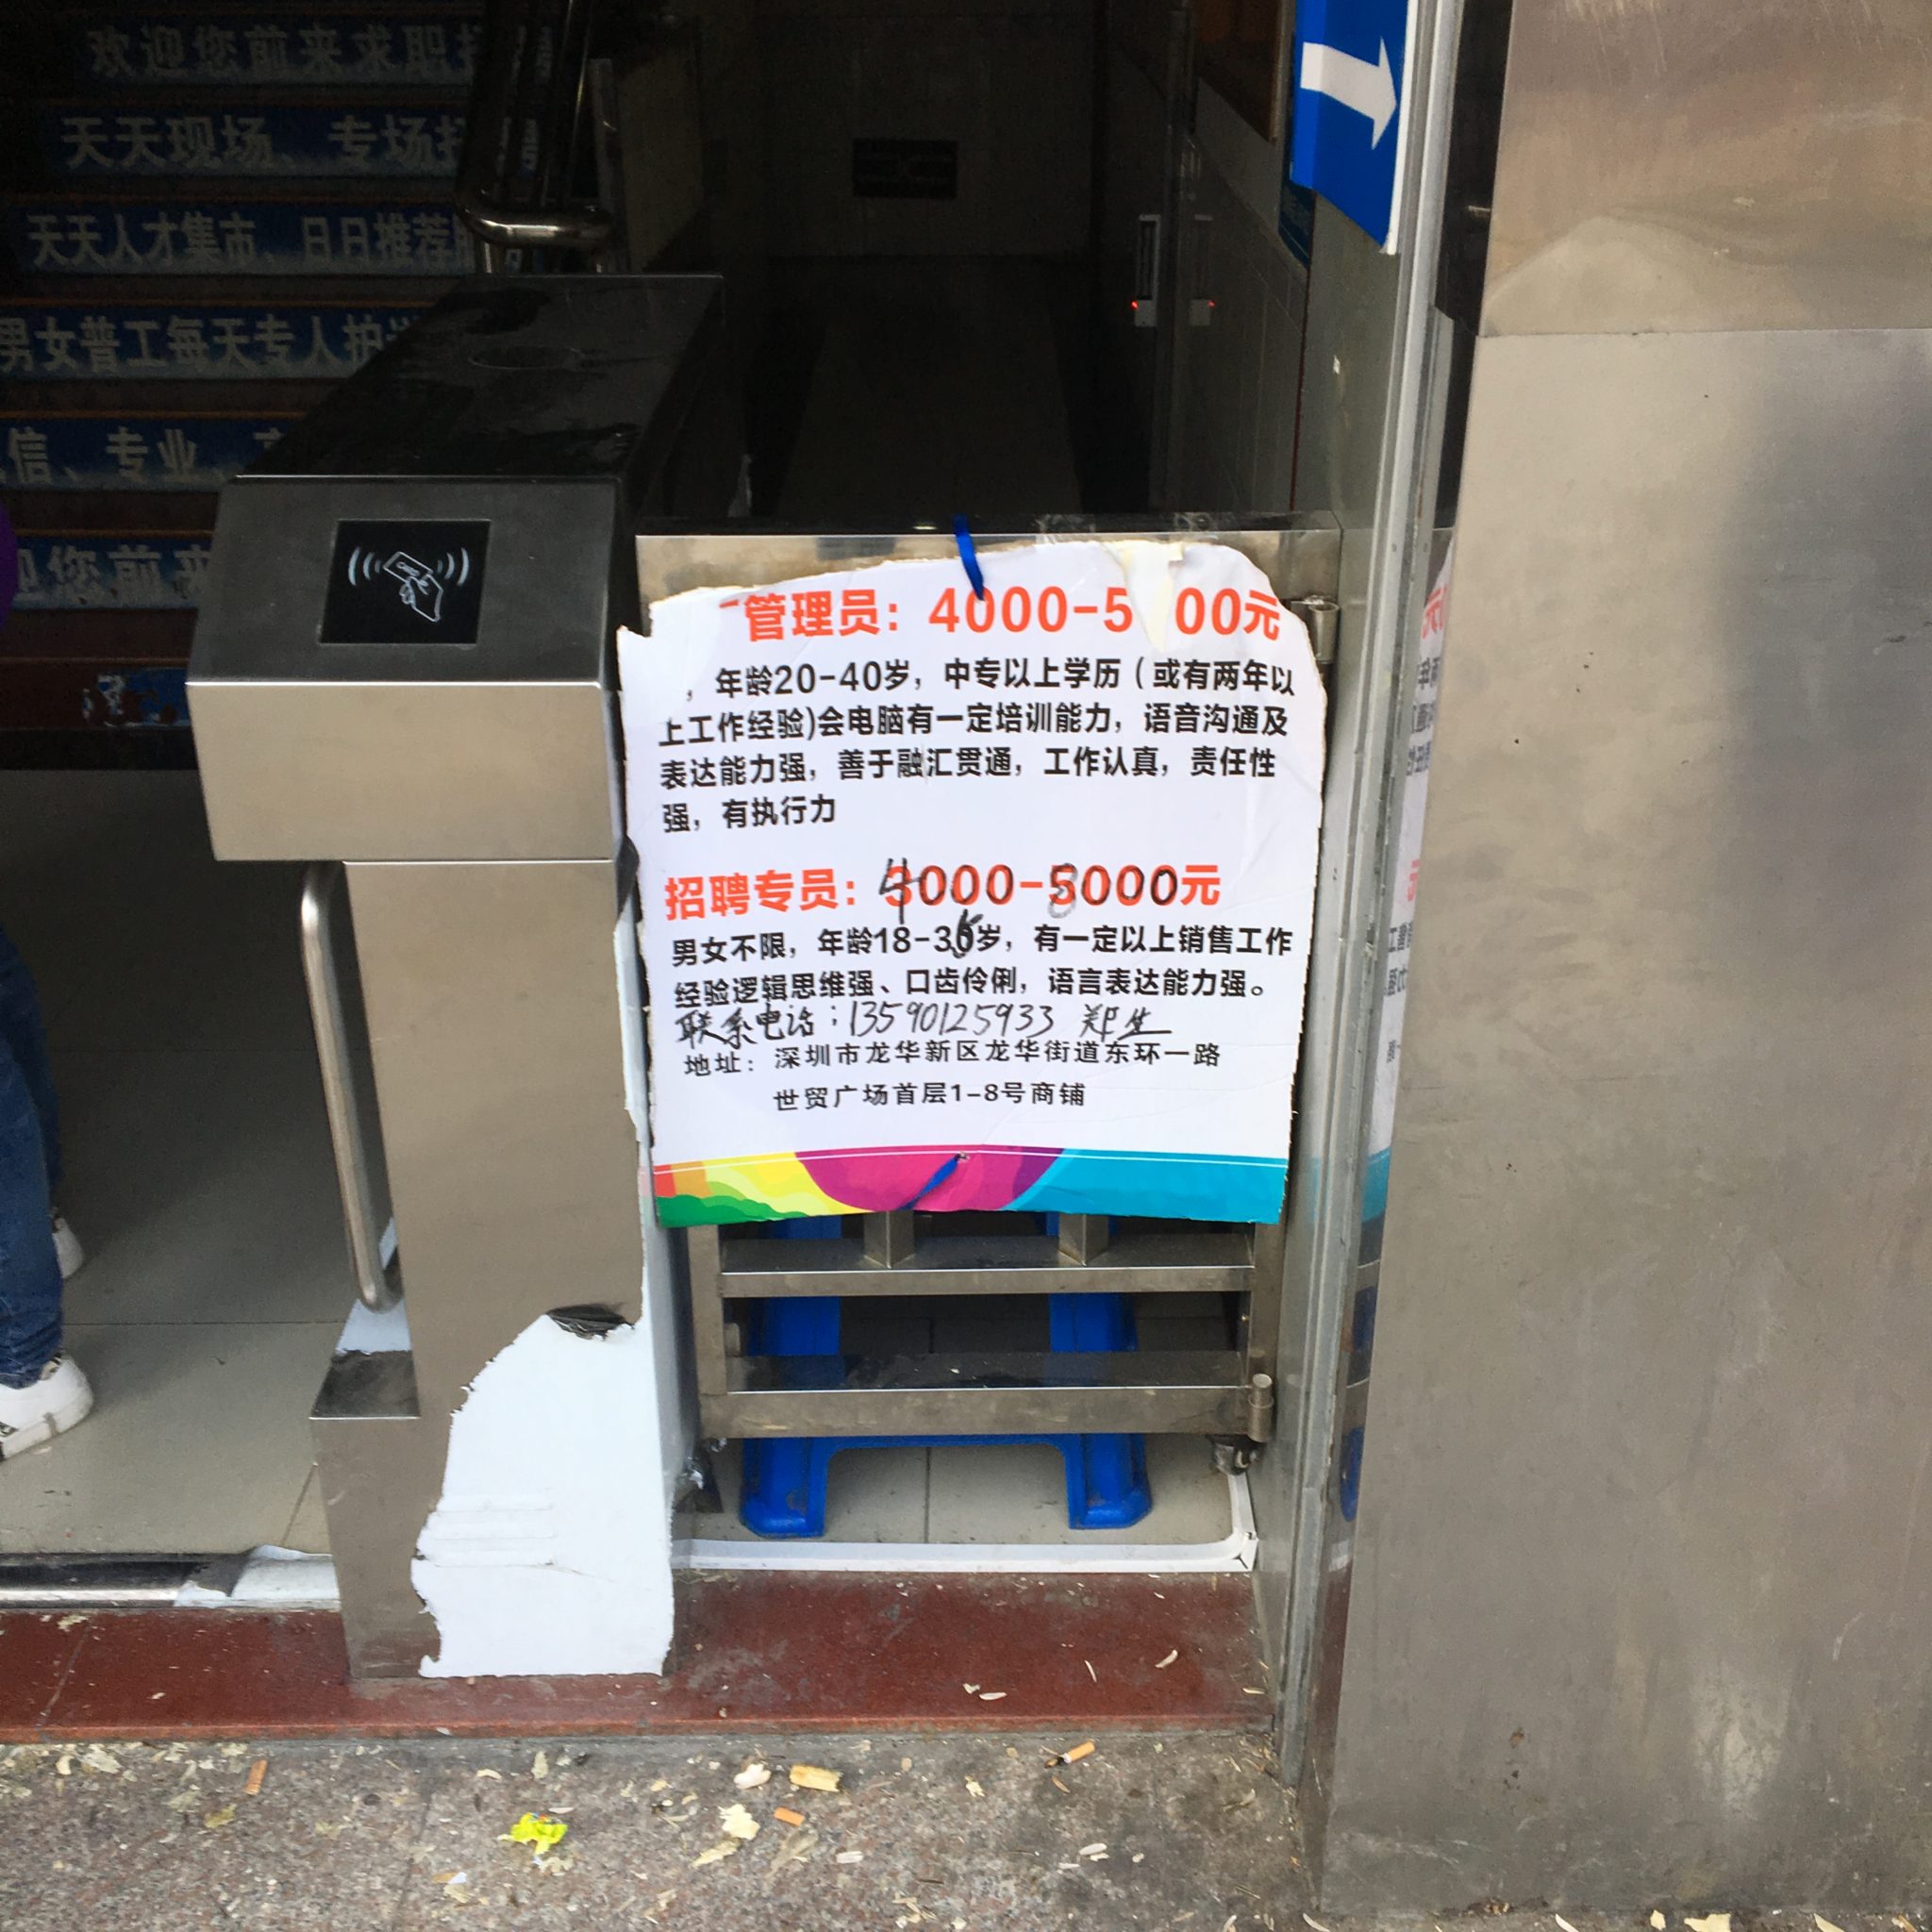 欢迎您前来求职
天天现场、专场招
天天人才集市、日日推荐服
男女普工每天专人护送
信、专业、
迎您前来
管理员：4000-5 00元
，年龄20-40岁，中专以上学历（或有两年以
上工作经验)会电脑有一定培训能力，语音沟通及
表达能力强，善于融汇贯通，工作认真，责任性
强，有执行力
招聘专员：4000-8000元
男女不限，年龄18-35岁，有一定以上销售工作
经验逻辑思维强、口齿伶俐，语言表达能力强。
联系电话：13590125933 郑生
地址：深圳市龙华新区龙华街道东环一路
世贸广场首层1-8号商铺